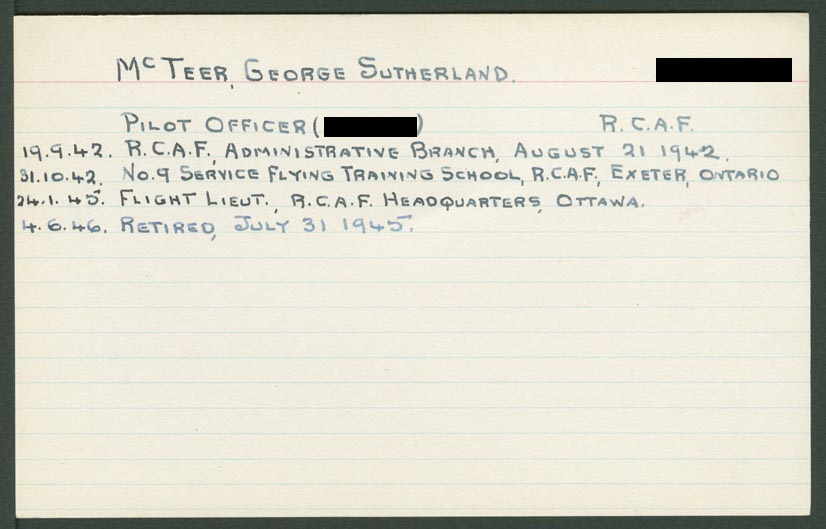 McTEER, GEORGE SUTHERLAND.
PILOT OFFICER ( ) R.C.A.F.
19.9.42. R.C.A.F., ADMINISTRATIVE BRANCH, AUGUST 21 1942.
31.10.42. NO.9 SERVICE FLYING TRAINING SCHOOL, R.C.A.F., EXETER, ONTARIO
24.1.45. FLIGHT LIEUT., R.C.A.F. HEADQUARTERS, OTTAWA.
4.6.46. RETIRED, JULY 31 1945.